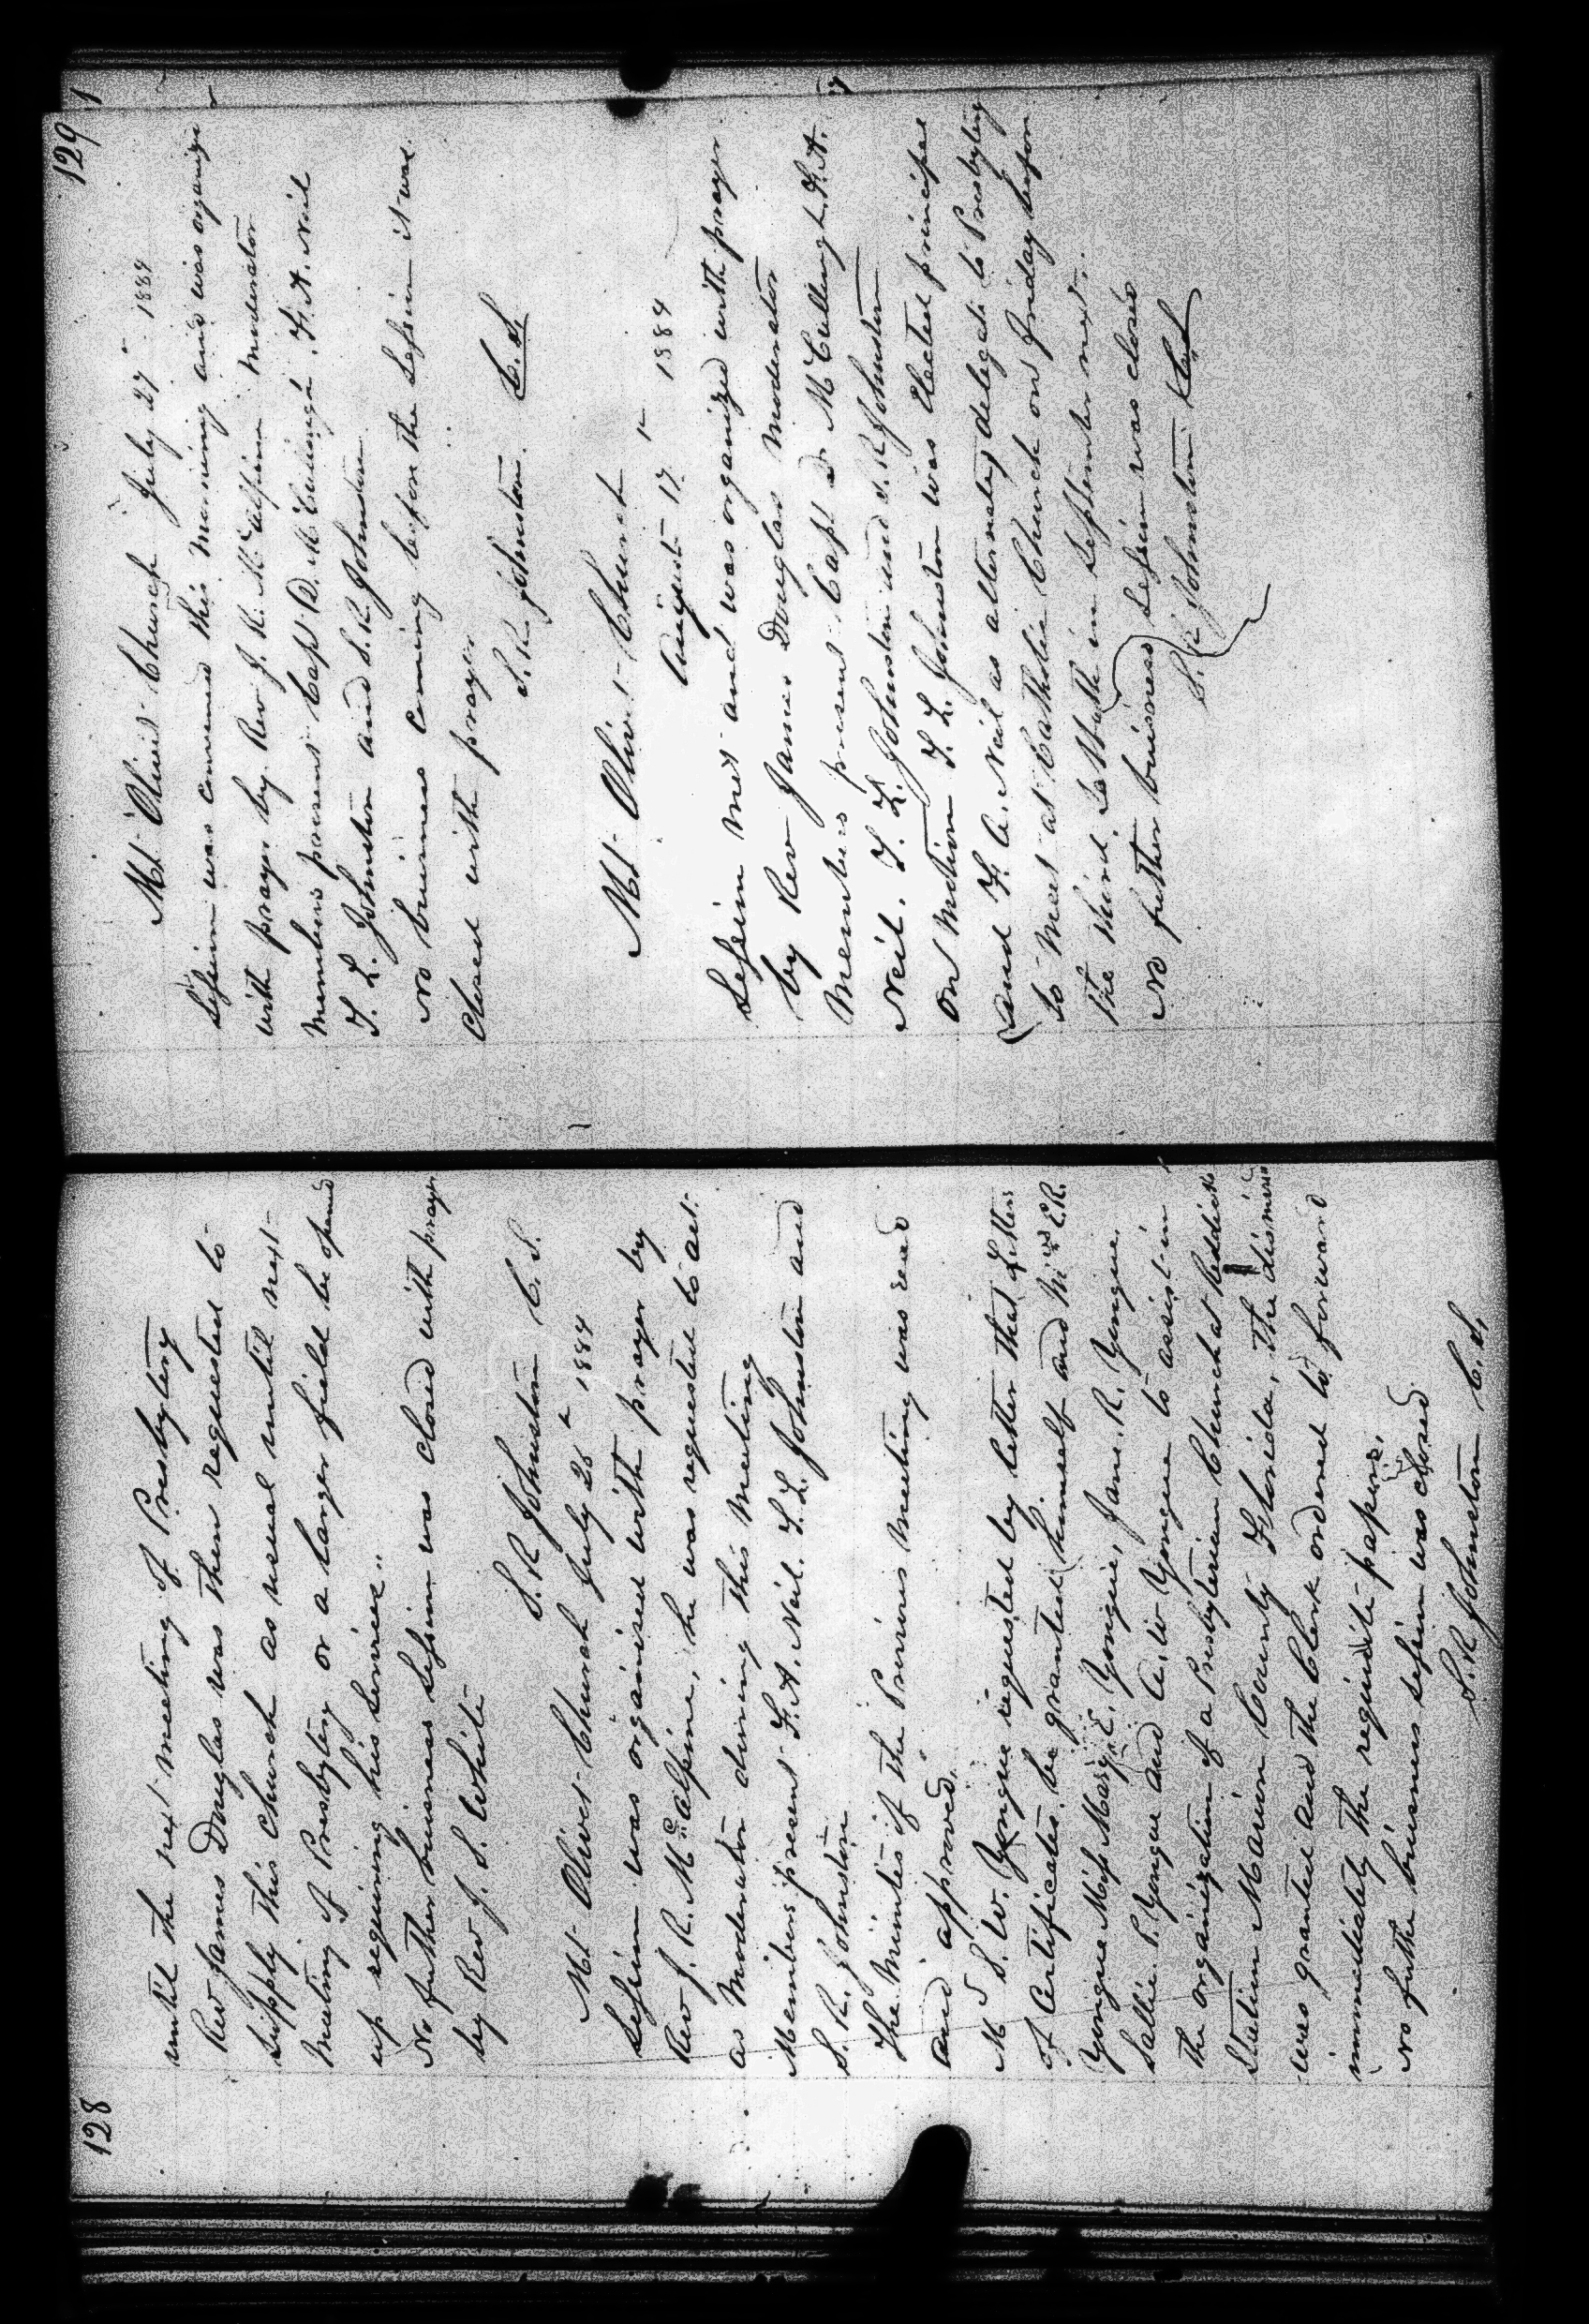 128
until the next meeting of Presbytery
Rev James Douglas was then requested to
supply this Church as usual until next
meeting of Presbytery or a larger field be opened
up requiring his services.
No futher business Session was closed with prayer
by Rev J. S. White
S. R Johnston C. S.
Mt Olivet Church July 26th 1884
Session was organised with prayer by
Rev J. R. McAlpine, he was requested to act
as Moderator during this meeting
Members present F. A. Neil. T. L. Johnston and
S. R. Johnston
The Minutes of the Previous meeting was read
and approved.
S. W. Yongue requested by letter that Letters
of Certificates be granted himself and Mrs E. R.
Yongue Miss Mary E. Yongue, Jane. R. Yongue.
Sallie. P. Yongue and A. W Yongue to assist in
the organization of a Presbyterian Church at Reddick
Station Marion County Florida, The dismission
was granted and the Clerk ordered to forward
immediately the requisite papers.
No futhe business session was closed
S. R Johnston C. S,
129
Mt Olivet Church July 27 1884
Session was convened this morning and was organize
with prayer by Rev J. R. McAlpine Moderator
Members present Capt D. McCullough. F. A. Neil
T. L. Johnston and S. R. Johnston
No business coming before the Session it was
closed with prayer
S. R. Johnston. C. S,
Mt Olivet Church
August 17th 1884
Session met and was organized with prayer
by Rev James Douglas Moderator
Members present Capt D McCullough. F. A.
Neil. T. L. Johnston and S. R Johnston
On Motion T. L. Johnston was Elected principal
and F. A. Neil as alternate, delegate to Presbytery
to Meet at Catholic Church on Friday before
the third Sabbath in September next.
No futher business Session was closed
S. R Johnston C S